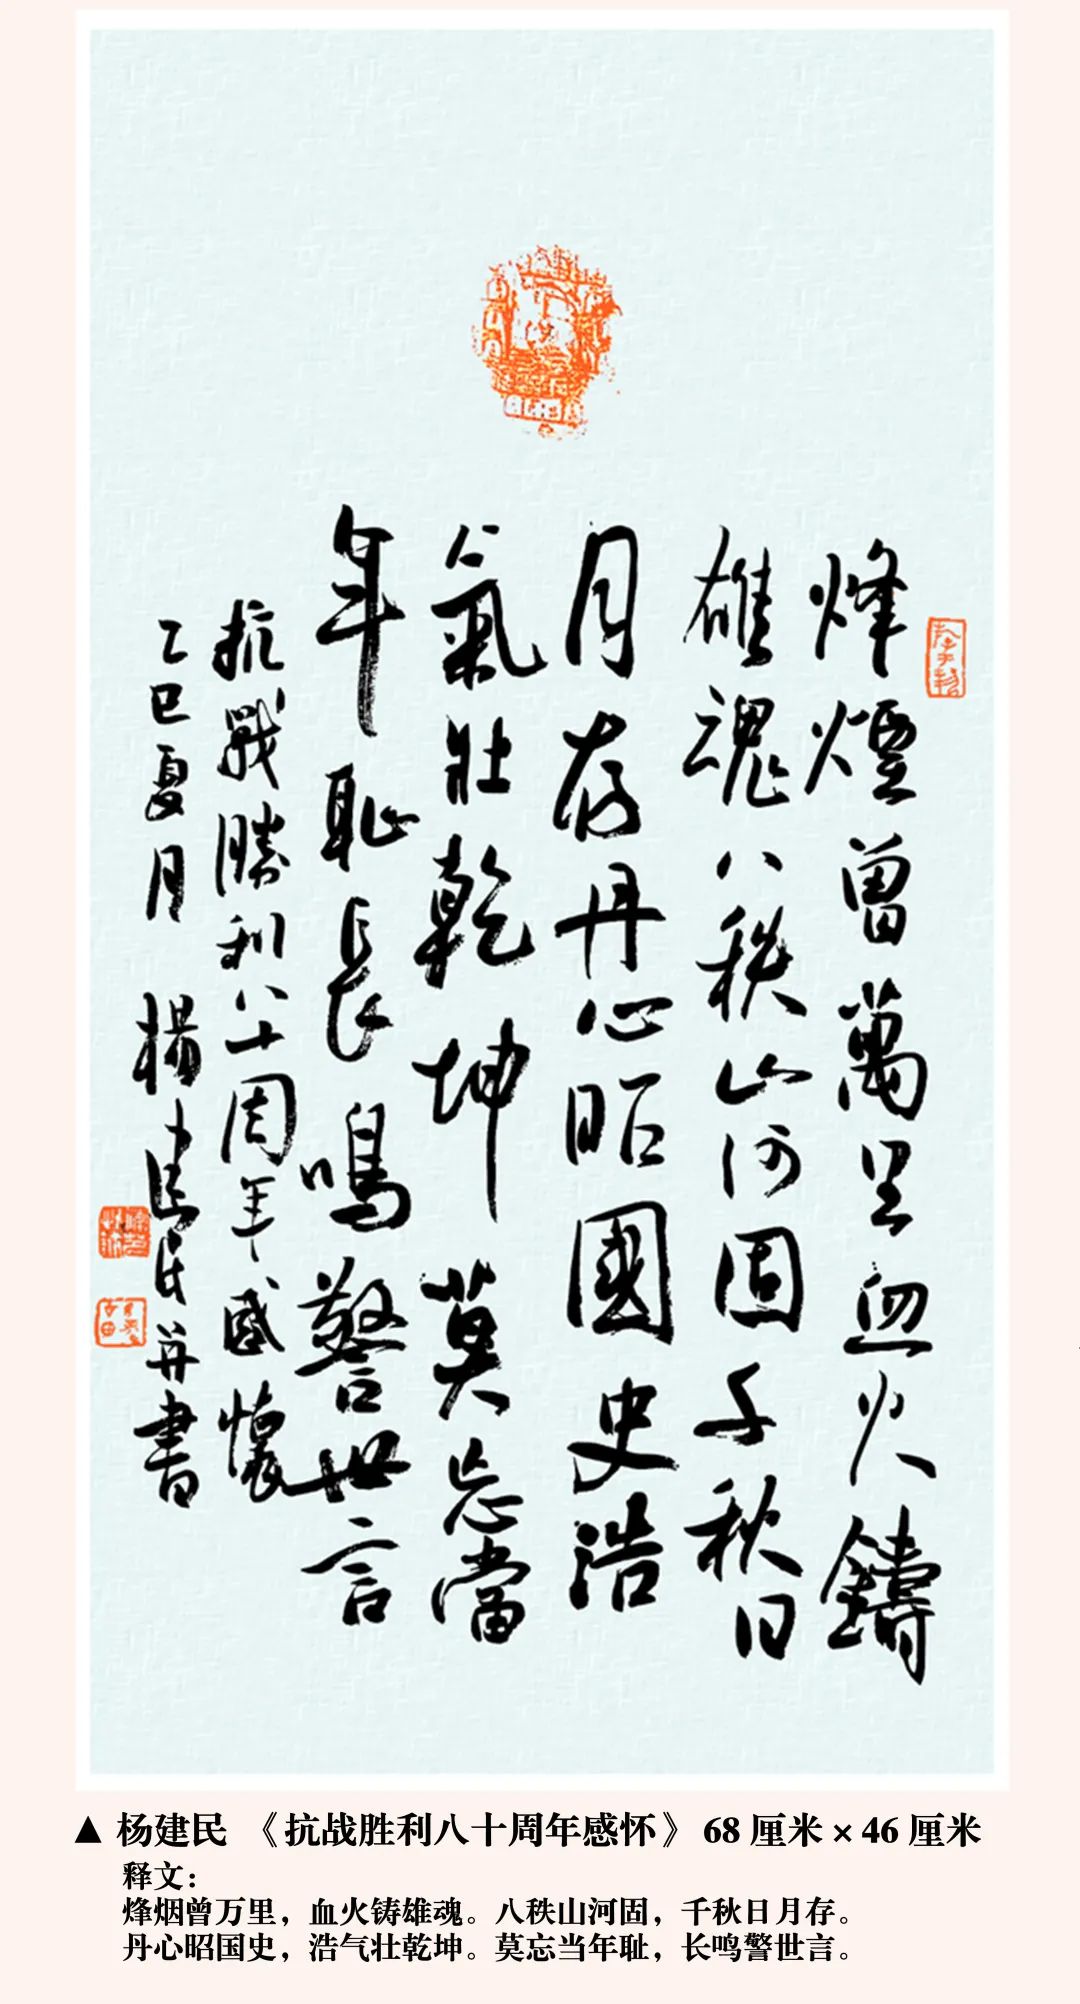 烽煙曾萬里血火鑄
雄魂八秩山河固千秋日
月存丹心昭國史浩
氣壯乾坤莫忘當
年恥長鳴警世言
抗戰勝利八十周年感懷
乙巳夏月 楊建民并書
▲ 杨建民 《抗战胜利八十周年感怀》 68 厘米 × 46 厘米
释文：
烽烟曾万里，血火铸雄魂。八秩山河固，千秋日月存。
丹心昭国史，浩气壮乾坤。莫忘当年耻，长鸣警世言。